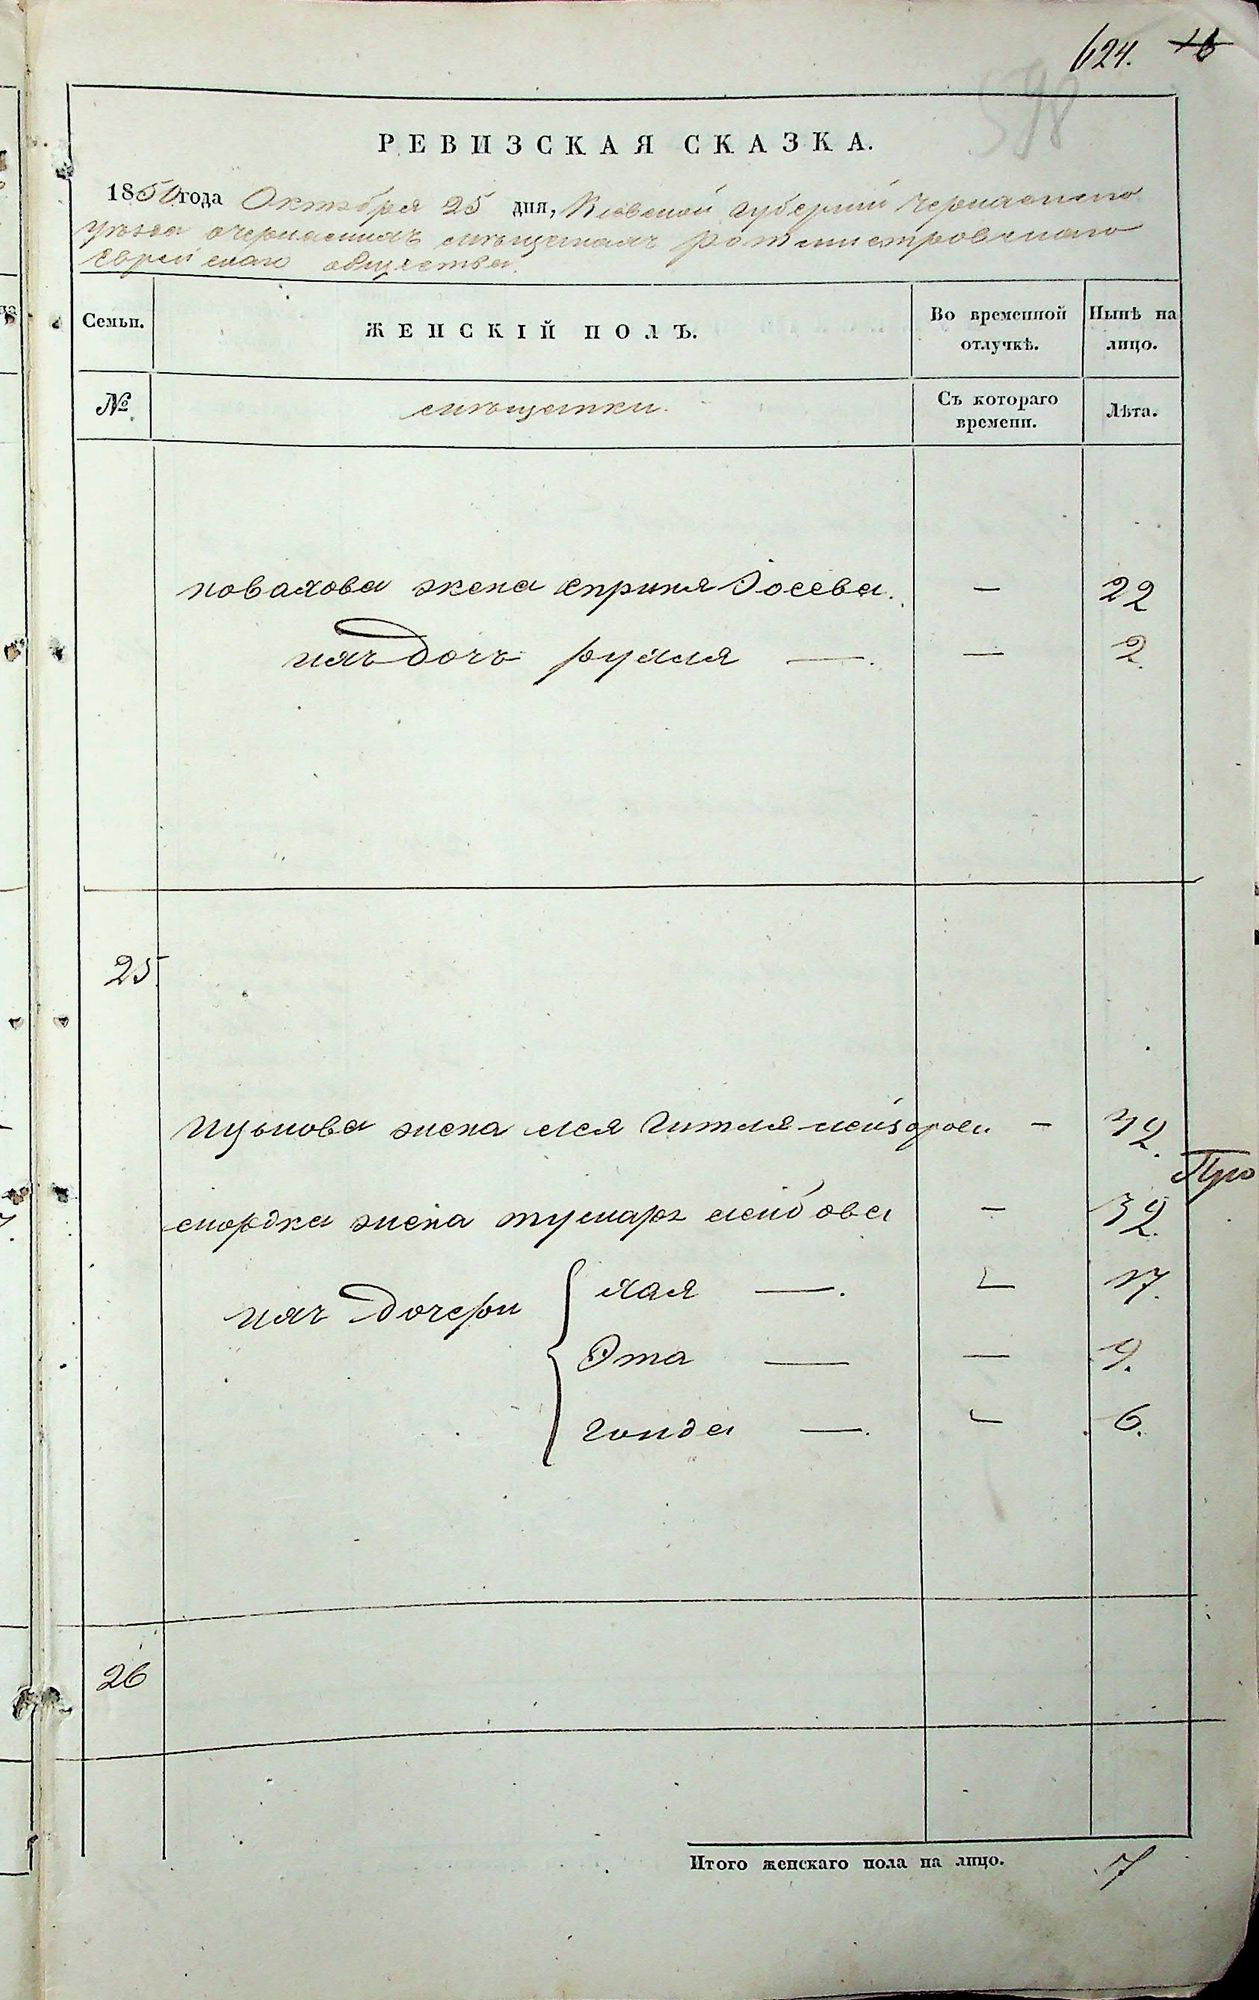 624. 16
598
РЕВИЗСКАЯ СКАЗКА.
1850 года Октября 25 дня, Киевской губернии Черкаскаго
уѣзда о черкаскихъ мѣщанахъ ротмистровскаго
еврейскаго общества.
Семьи. ЖЕНСКІЙ ПОЛЪ. Во временной отлучкѣ. Нынѣ на лицо.
№ мѣщанки. Съ котораго времени. Лѣта.
жена Іосева. — 22
ихъ дочь рухля — . — 2.
25.
жена лея Гитля — 42.
Про
мордка жена тумаръ лейбова — 32.
ихъ дочери хая — . — 17.
Эта — — 9.
голда — . — 6.
26
Итого женскаго пола на лицо. 7